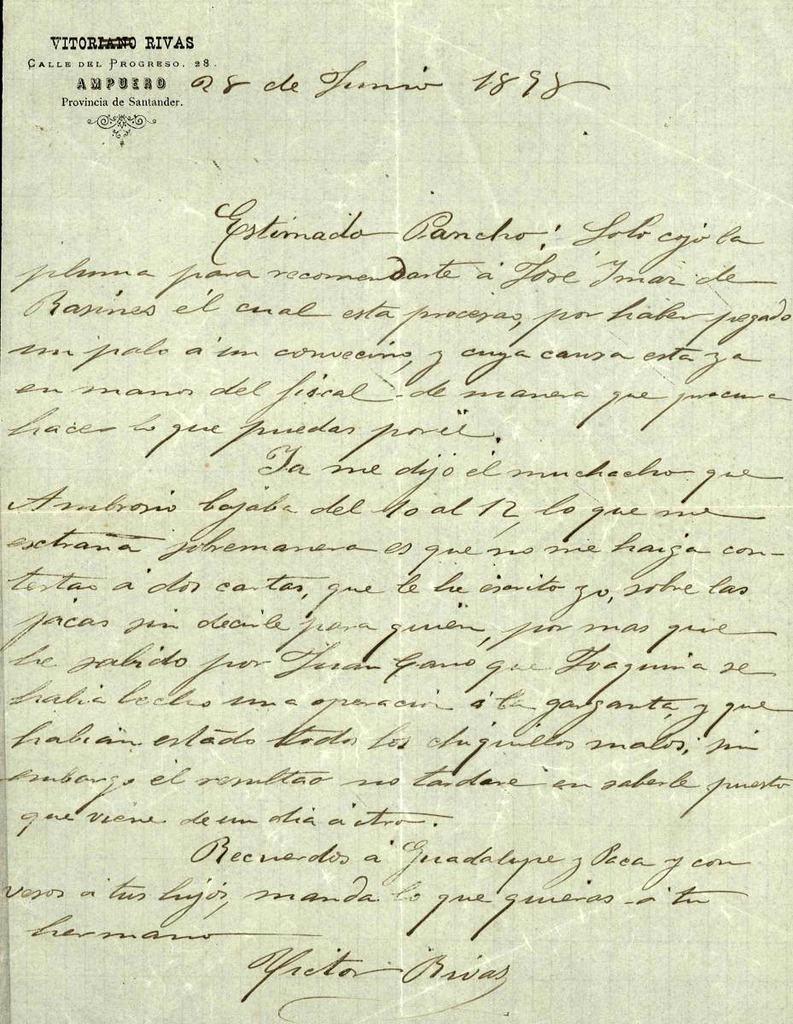 VITORIANO RIVAS
CALLE DEL PROGRESO, 28.
AMPUERO
Provincia de Santander.
28 de Junio 1898
Estimado Pancho: Solo cojo la
pluma para recomendarte á José Imaz de
Rasines él cual esta procesao, por haber pegado
un palo á un convecino, y cuya causa esta ya
en manos del fiscal de manera que procura
hacer lo que puedas por él.
Ya me dijo él muchacho que
Ambrosio bajaba del 10 al 12, lo que me
extraña sobremanera es que no me haiga con-
testao á dos cartas, que le he escrito yo, sobre las
jacas sin decirle para quien, por mas que
he sabido por Juan Cano que Joaquina se
habia hecho una operación á la garganta, y que
habian estado todos los chiquillos malos; sin
embargo él resultao no tardare en saberle puesto
que viene de un dia á otro.
Recuerdos á Guadalupe y Paca y con
vesos á tus hijos, manda lo que quieras á tu
hermano
Victor Rivas